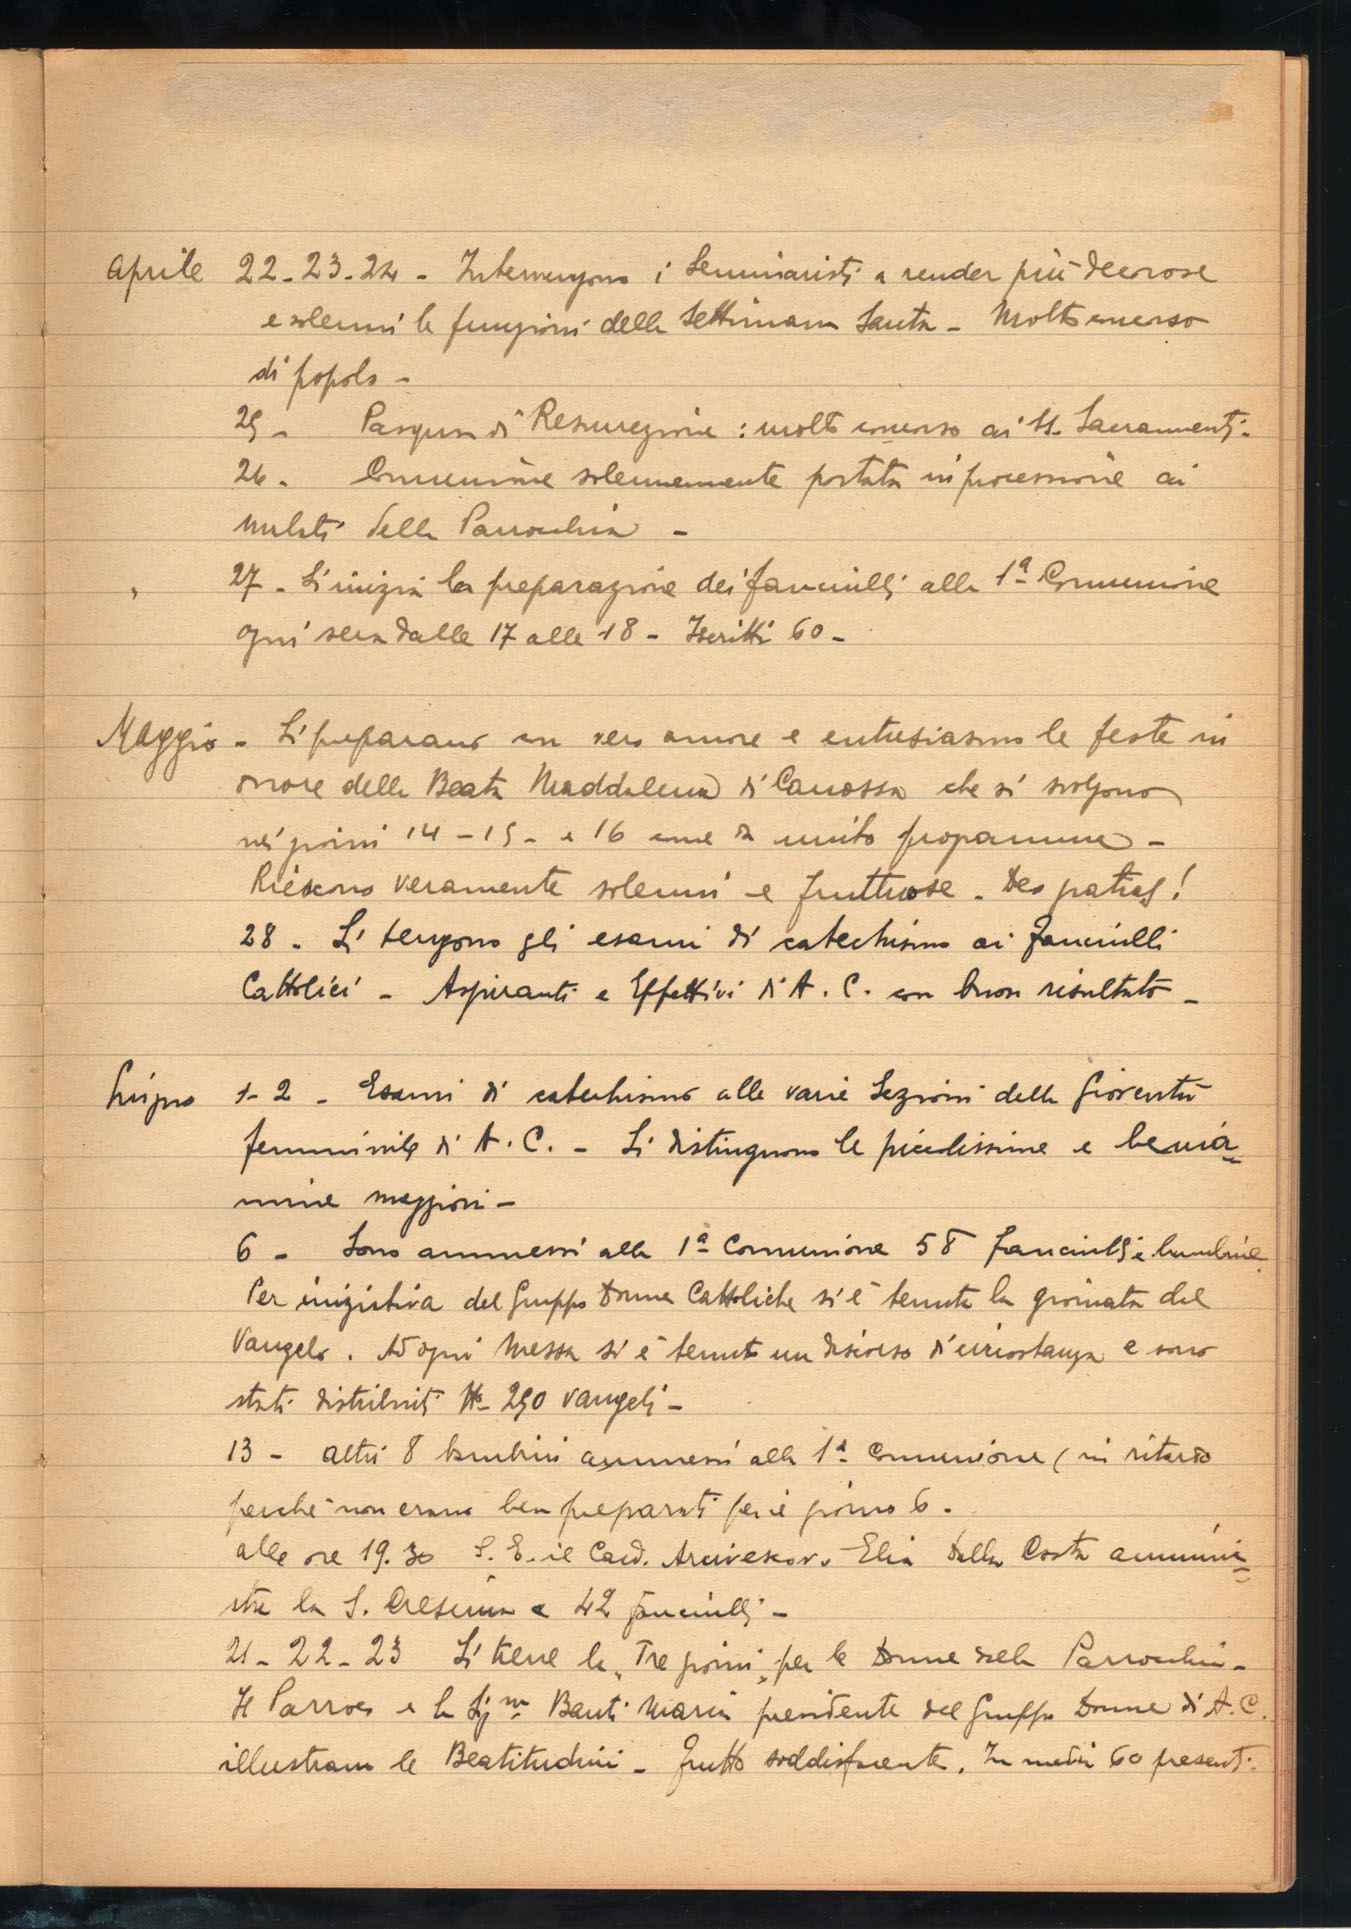 Aprile 22-23-24 - Intervengono i Seminaristi a render più decorose
e solenni le funzioni della Settimana Santa - Molto concorso
di popolo -
25 - Pasqua di Resurrezione: molto concorso ai SS. Sacramenti -
26 - Comunione solennemente portata in processione ai
malati della Parrochia -
27 - Si inizia la preparazione dei fanciulli alla 1ª Comunione
ogni sera dalle 17 alle 18 - Iscritti 60 -
Maggio - Si preparano con vero amore e entusiasmo le feste in
onore della Beata Maddalena di Canossa che si svolgono
nei giorni 14 - 15 - e 16 come da unito programma -
Riescono veramente solenni e fruttuose - Deo gratias!
28 - Si tengono gli esami di catechismo ai fanciulli
Cattolici - Aspiranti e Effettivi di A. C. con buon risultato -
Giugno 1-2 - Esami di catechismo alle varie Sezioni della Gioventù
femminile di A. C. - Si distinguono le piccolissime e benia=
mine maggiori -
6 - Sono ammessi alla 1ª Comunione 58 fanciulli e bambine.
Per iniziativa del Gruppo Donne Cattoliche si è tenuta la giornata del
Vangelo. Ad ogni Messa si è tenuto un discorso di circostanza e sono
stati distribuiti No- 250 Vangeli -
13 - Altri 8 bambini ammessi alla 1ª Comunione (in ritardo
perché non erano ben preparati per il giorno 6 -
alle ore 19.30 S. E. il Card. Arcivescovo Elia Dalla Costa ammini=
stra la S. Cresima a 42 fanciulli -
21 - 22 - 23 Si tiene la "Tre giorni" per le Donne della Parrochia -
Il Parroco e la Sig.na Banti Maria presidente del Gruppo Donne di A. C.
illustrano le Beatitudini - frutto soddisfacente. In media 60 presenti -